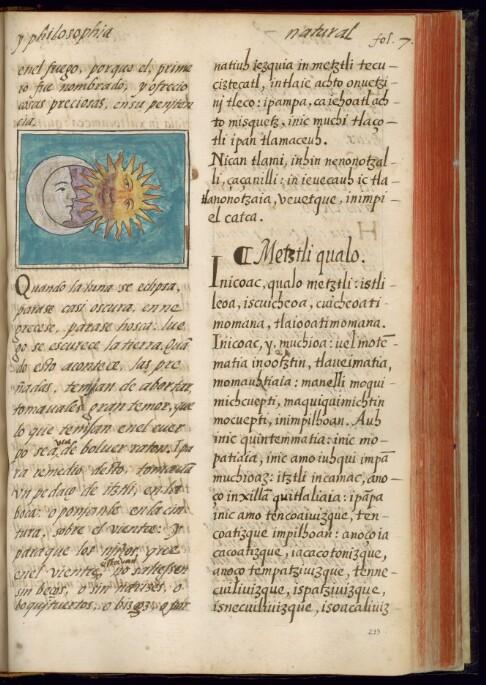 y philosophia
natural
fol. 7.
enel fuego, porque el, prime
ro fue nombrado, y ofrecio
cosas preciosas, ensu peniten
cia.
Quando la luna se eclipsa,
parase casi oscura, enne
grecese, parase hosca: lue
go se escurece la tierra. Quã
do esto acontece, las pre
ñadas, temjan de abortar,
tomauales gran temor, que
lo que temjan enel cuer
po sea, de boluer raton. I pa
ra remedio desto, tomauã
vn pedaço de itztli, en la
boca: o ponjanle en la cin
tura, sobre el vientre: y
para que los njños, que
enel vientre estauan no saliesen
sin beços, o sin narizes, o
boquituertos, o bisços, o por
natiuh iezquia in metztli tecu-
ciztecatl, intlaie achto onuetzi-
nj tleco: ipampa, ca iehoatl ach-
to misquetz, inic muchi tlaço-
tli ipan tlamaceuh.
Nican tlami, inhin nenonotzal-
li, çaçanilli: in ieuecauh ic tla-
tlanonotzaia, veuetque, inimpi-
el catca.
¶ Metztli qualo.
Inicoac, qualo metztli: istli-
leoa, iscuicheoa, cuicheoati-
momana, tlaiooatimomana.
Inicoac, y, muchioa: uel motẽ-
matia inootztin, tlaueimatia,
momauhtiaia: manelli moqui-
michcuepti, maquiquimichtin
mocuepti, inimpilhoan. Auh
inic quintemmatia: inic mo-
patiaia, inic amo iuhqui impã
muchioaz: itztli incamac, ano-
ço inxillã quitlaliaia: ipãpa
inic amo tencoaiuizque, ten-
coatizque impilhoan: anoço ia
cacoatizque, iacacotonizque,
anoço tempatziuizque, tenne-
cuiliuizque, ispatziuizque,
isnecuiliuizque, isoacaliuiz
233